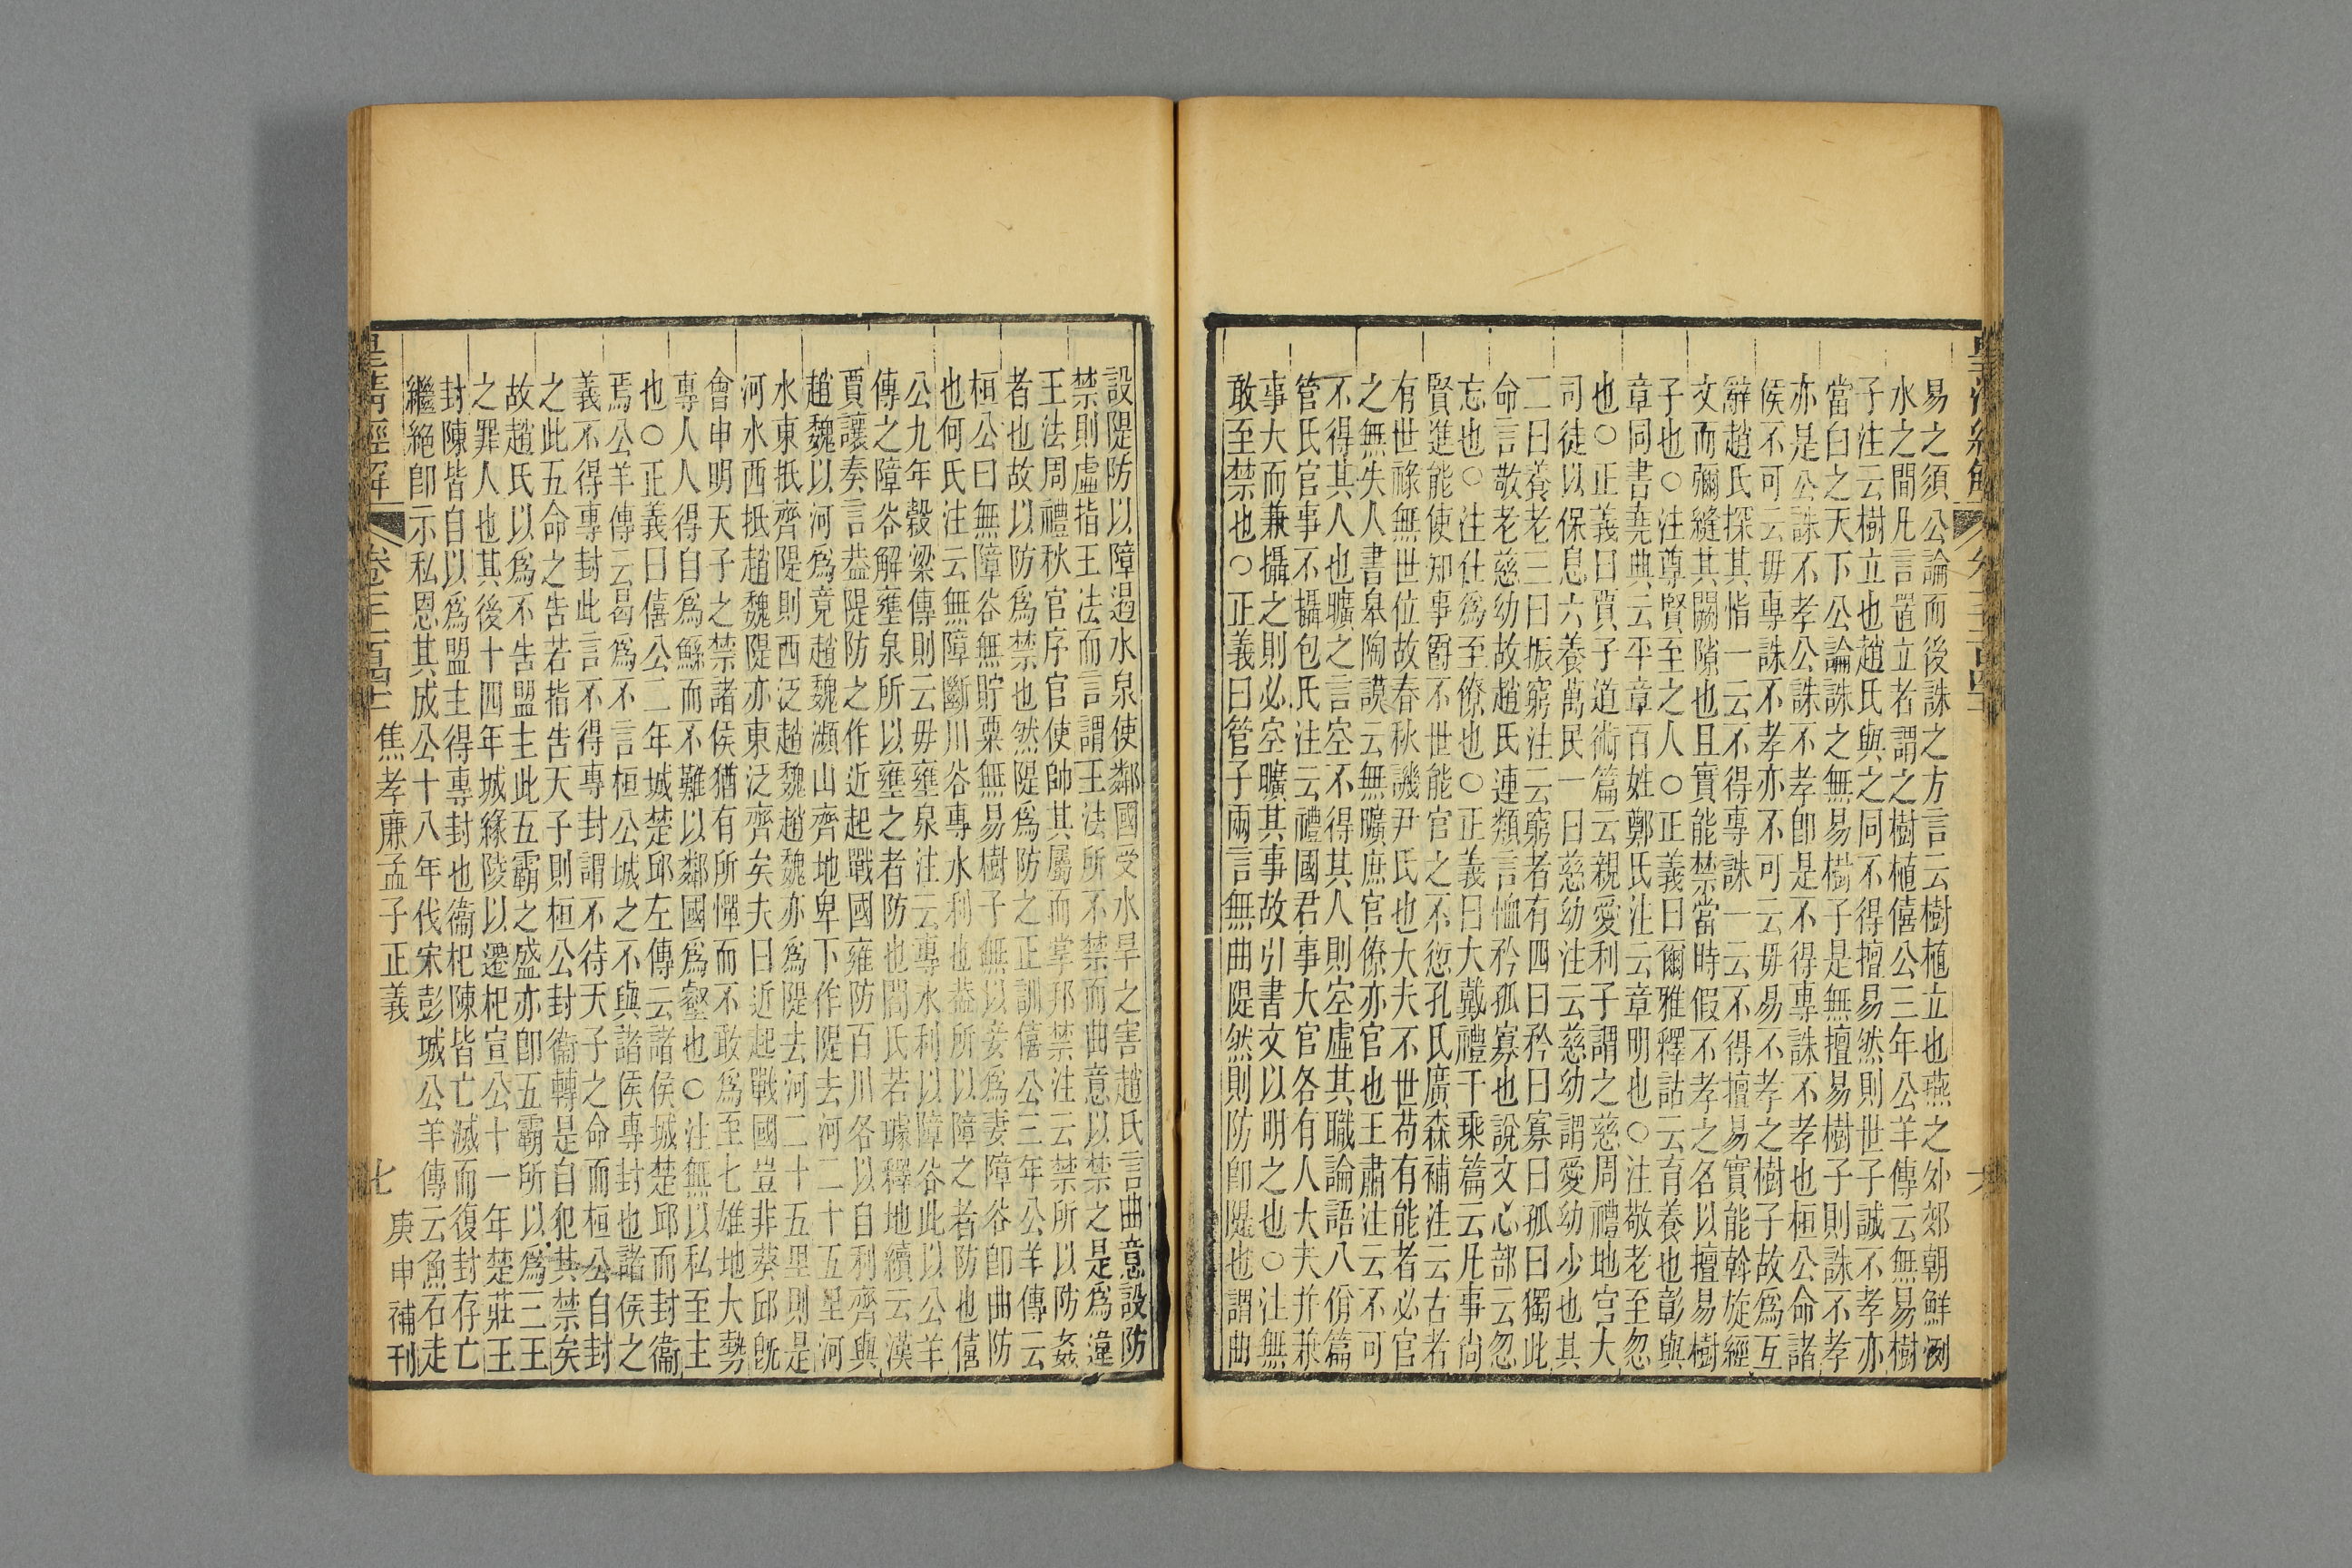 易之須公論而後誅之方言云樹植立也燕之外郊朝鮮洌
水之間凡言置立者謂之樹植僖公三年公羊傳云無易樹
子注云樹立也趙氏與之同不得擅易然則世子誠不孝亦
當白之天下公論誅之無易樹子是無擅易樹子則誅不孝
亦是公誅不孝公誅不孝卽是不得專誅不孝也桓公命諸
侯不可云毋專誅不孝亦不可云毋易不孝之樹子故爲互
辭趙氏探其恉一云不得專誅一云不得擅易實能斡旋經
文而彌縫其闕隙也且實能禁當時假不孝之名以擅易樹
子也○注尊賢至之人○正義曰爾雅釋詁云育養也彰與
章同書堯典云平章百姓鄭氏注云章明也○注敬老至忽
也○正義曰賈子道術篇云親愛利子謂之慈周禮地官大
司徒以保息六養萬民一曰慈幼注云慈幼謂愛幼少也其
二曰養老三曰振窮注云窮者有四曰矜曰寡曰孤曰獨此
命言敬老慈幼故趙氏連類言恤矜孤寡也說文心部云忽
忘也○注仕爲至僚也○正義曰大戴禮千乘篇云凡事尙
賢進能使知事爵不世能官之不愆孔氏廣森補注云古者
有世祿無世位故春秋譏尹氏也大夫不世苟有能者必官
之無失人書皋陶謨云無曠庶官僚亦官也王肅注云不可
不得其人也曠之言空不得其人則空虛其職論語八佾篇
管氏官事不攝包氏注云禮國君事大官各有人大夫并兼
事大而兼攝之則必空曠其事故引書文以明之也○注無
敢至禁也○正義曰管子兩言無曲隄然則防卽隄也謂曲
設隄防以障遏水泉使鄰國受水旱之害趙氏言曲意設防
禁則虛指王法而言謂王法所不禁而曲意以禁之是爲違
王法周禮秋官序官使帥其屬而掌邦禁注云禁所以防姦
者也故以防爲禁也然隄爲防之正訓僖公三年公羊傳云
桓公曰無障谷無貯粟無易樹子無以妾爲妻障谷卽曲防
也何氏注云無障斷川谷專水利也葢所以障之者防也僖
公九年穀梁傳則云毋壅泉注云專水利以障谷此以公羊
傳之障谷解壅泉所以壅之者防也閻氏若璩釋地續云漢
賈讓奏言葢隄防之作近起戰國雍防百川各以自利齊與
趙魏以河爲竟趙魏瀕山齊地卑下作隄去河二十五里河
水東抵齊隄則西泛趙魏趙魏亦爲隄去河二十五里則是
河水西抵趙魏隄亦東泛齊矣夫曰近起戰國豈非葵邱旣
會申明天子之禁諸侯猶有所憚而不敢爲至七雄地大勢
專人人得自爲鯀而不難以鄰國爲壑也○注無以私至主
也○正義曰僖公二年城楚邱左傳云諸侯城楚邱而封衞
焉公羊傳云曷爲不言桓公城之不與諸侯專封也諸侯之
義不得專封此言不得專封謂不待天子之命而桓公自封
之此五命之告若指告天子則桓公封衞轉是自犯其禁矣
故趙氏以爲不告盟主此五霸之盛亦卽五霸所以爲三王
之罪人也其後十四年城緣陵以遷杞宣公十一年楚莊王
封陳皆自以爲盟主得專封也衞杞陳皆亡滅而復封存亡
繼絕卽示私恩其成公十八年伐宋彭城公羊傳云魚石走
皇清經解 卷一千一百四十 焦孝廉孟子正義 七 庚申補刊